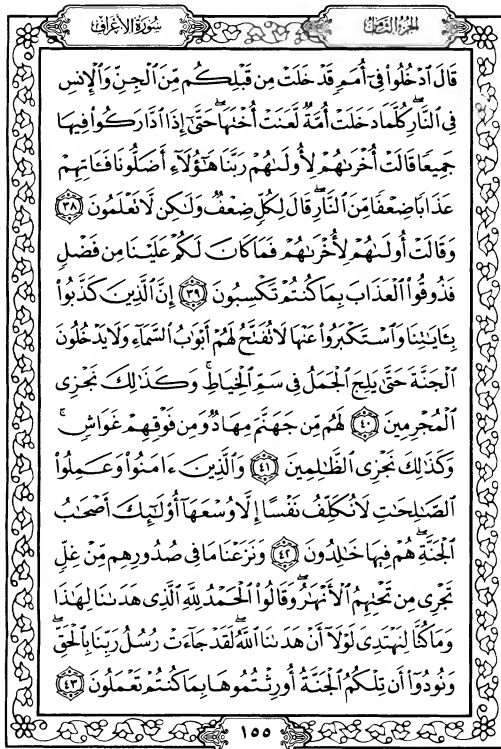 سُورَةُ الأَعْرَافِ
الجُزْءُ الثَّامِنُ
قَالَ ٱدْخُلُوا۟ فِىٓ أُمَمٍ قَدْ خَلَتْ مِن قَبْلِكُم مِّنَ ٱلْجِنِّ وَٱلْإِنسِ
فِى ٱلنَّارِ ۖ كُلَّمَا دَخَلَتْ أُمَّةٌ لَّعَنَتْ أُخْتَهَا ۖ حَتَّىٰٓ إِذَا ٱدَّارَكُوا۟ فِيهَا
جَمِيعًا قَالَتْ أُخْرَىٰهُمْ لِأُولَىٰهُمْ رَبَّنَا هَـٰٓؤُلَآءِ أَضَلُّونَا فَـَٔاتِهِمْ
عَذَابًا ضِعْفًا مِّنَ ٱلنَّارِ ۖ قَالَ لِكُلٍّ ضِعْفٌ وَلَـٰكِن لَّا تَعْلَمُونَ ٣٨
وَقَالَتْ أُولَىٰهُمْ لِأُخْرَىٰهُمْ فَمَا كَانَ لَكُمْ عَلَيْنَا مِن فَضْلٍ
فَذُوقُوا۟ ٱلْعَذَابَ بِمَا كُنتُمْ تَكْسِبُونَ ٣٩ إِنَّ ٱلَّذِينَ كَذَّبُوا۟
بِـَٔايَـٰتِنَا وَٱسْتَكْبَرُوا۟ عَنْهَا لَا تُفَتَّحُ لَهُمْ أَبْوَٰبُ ٱلسَّمَآءِ وَلَا يَدْخُلُونَ
ٱلْجَنَّةَ حَتَّىٰ يَلِجَ ٱلْجَمَلُ فِى سَمِّ ٱلْخِيَاطِ ۚ وَكَذَٰلِكَ نَجْزِى
ٱلْمُجْرِمِينَ ٤٠ لَهُم مِّن جَهَنَّمَ مِهَادٌ وَمِن فَوْقِهِمْ غَوَاشٍ ۚ
وَكَذَٰلِكَ نَجْزِى ٱلظَّـٰلِمِينَ ٤١ وَٱلَّذِينَ ءَامَنُوا۟ وَعَمِلُوا۟
ٱلصَّـٰلِحَـٰتِ لَا نُكَلِّفُ نَفْسًا إِلَّا وُسْعَهَآ أُو۟لَـٰٓئِكَ أَصْحَـٰبُ
ٱلْجَنَّةِ ۖ هُمْ فِيهَا خَـٰلِدُونَ ٤٢ وَنَزَعْنَا مَا فِى صُدُورِهِم مِّنْ غِلٍّ
تَجْرِى مِن تَحْتِهِمُ ٱلْأَنْهَـٰرُ ۖ وَقَالُوا۟ ٱلْحَمْدُ لِلَّهِ ٱلَّذِى هَدَىٰنَا لِهَـٰذَا
وَمَا كُنَّا لِنَهْتَدِىَ لَوْلَآ أَنْ هَدَىٰنَا ٱللَّهُ ۖ لَقَدْ جَآءَتْ رُسُلُ رَبِّنَا بِٱلْحَقِّ ۖ
وَنُودُوٓا۟ أَن تِلْكُمُ ٱلْجَنَّةُ أُورِثْتُمُوهَا بِمَا كُنتُمْ تَعْمَلُونَ ٤٣
١٥٥